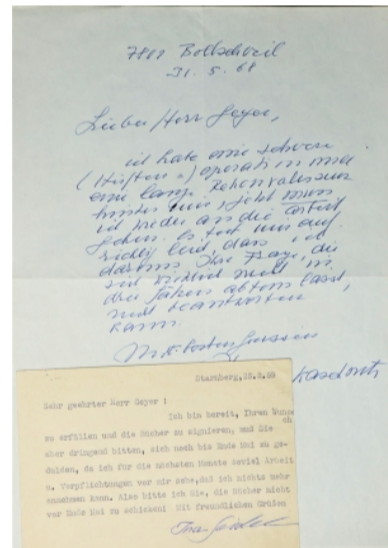 7801 Bollschweil
31. 5. 68
Lieber Herr Geyer,
ich habe eine schwere
(Hüften) operation und
eine lange Rekonvaleszenz
hinter mir, jetzt muss
ich wieder an die Arbeit
gehen. Es tut mir auf-
richtig leid, dass ich
darum Ihre Frage, die
sich wirklich nicht in
drei Sätzen abtun lässt,
nicht beantworten
kann.
Mit besten Grüssen
Kaschnitz
Starnberg, 10.2.59
Sehr geehrter Herr Geyer :
Ich bin bereit, Ihren Wunsch
zu erfüllen und die Bücher zu signieren, muß Sie
aber dringend bitten, sich noch bis Ende Mai zu ge-
dulden, da ich für die nächsten Monate soviel Arbeit
u. Verpflichtungen vor mir sehe, daß ich nichts mehr
annehmen kann. Also bitte ich Sie, die Bücher nicht
vor Ende Mai zu schicken! Mit freundlichen Grüßen
Ina Seidel